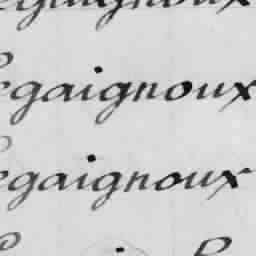 egaignoux
egaignoux
egaignoux